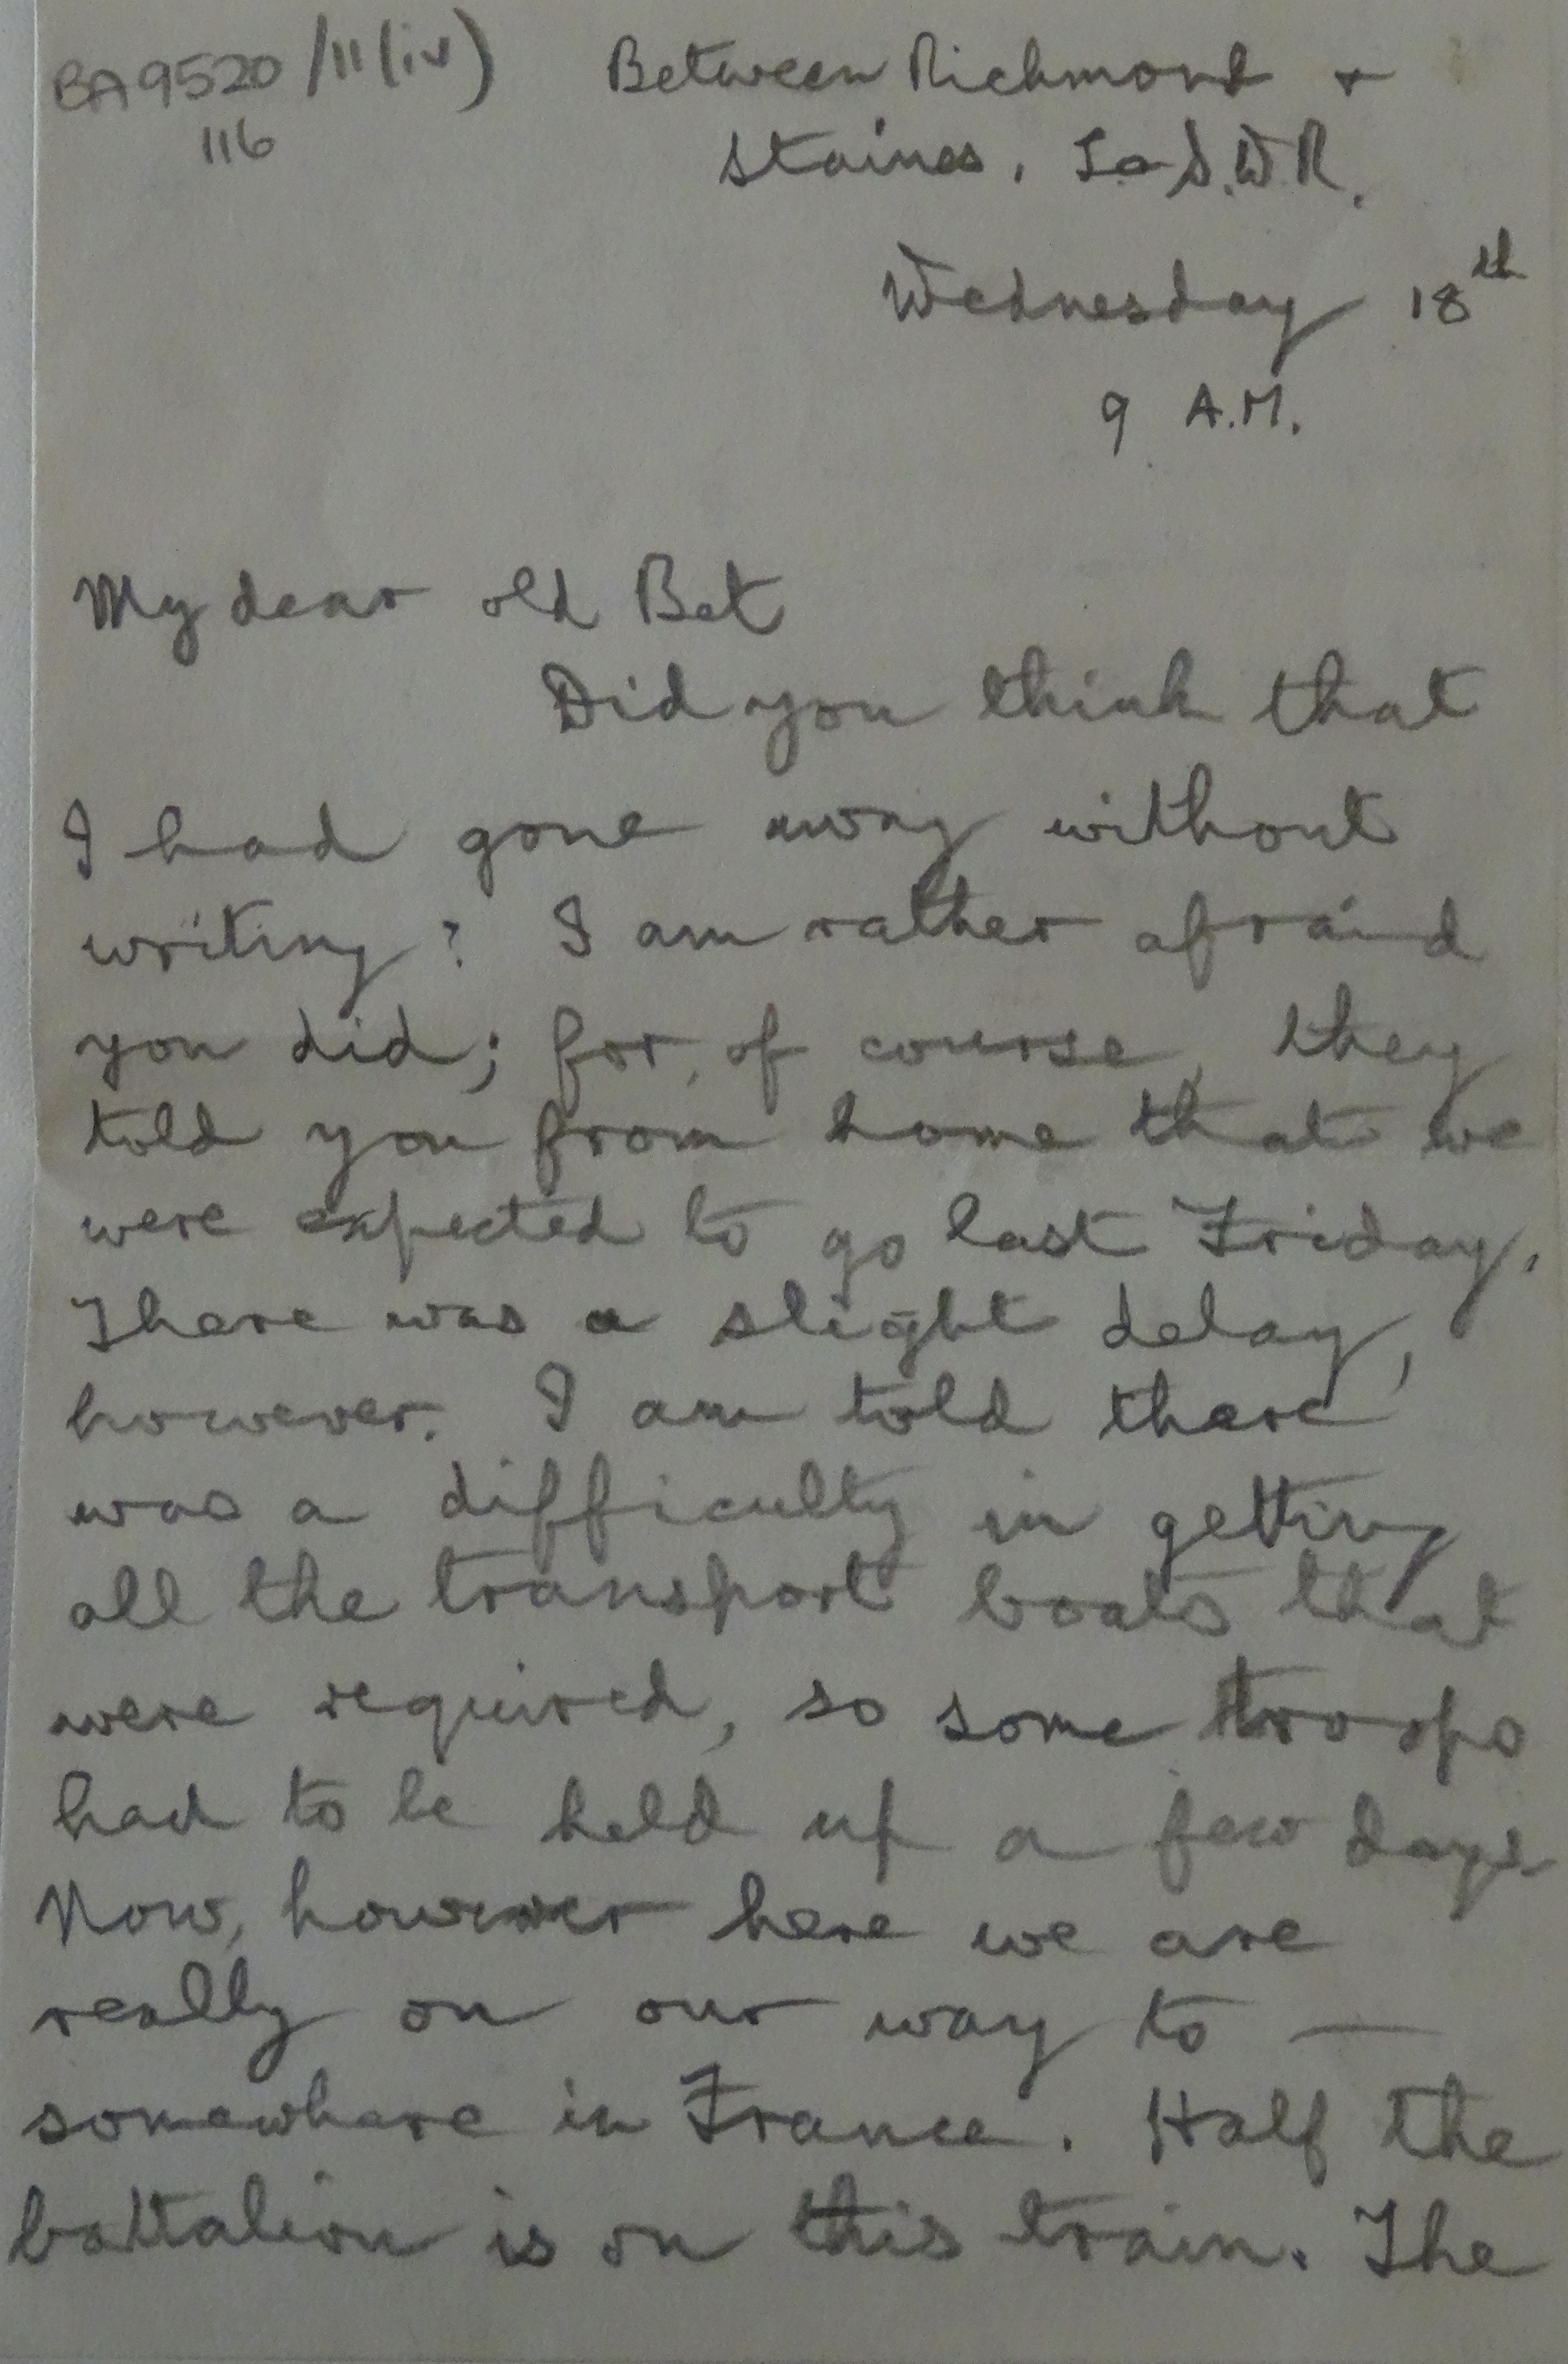 BA9520/11(iv)
116
Between Richmond +
Staines, L S.W.R.
Wednesday 18th
9 A.M.
My dear old Bet
Did you think that
I had gone away without
writing? I am rather afraid
you did; for, of course, they
told you from home that we
were expected to go last Friday.
There was a slight delay,
however. I am told there
was a difficulty in getting
all the transport boats that
were required, so some troops
had to be held up a few days
Now, however here we are
really on our way to —
somewhere in France. Half the
battalion is on this train. The